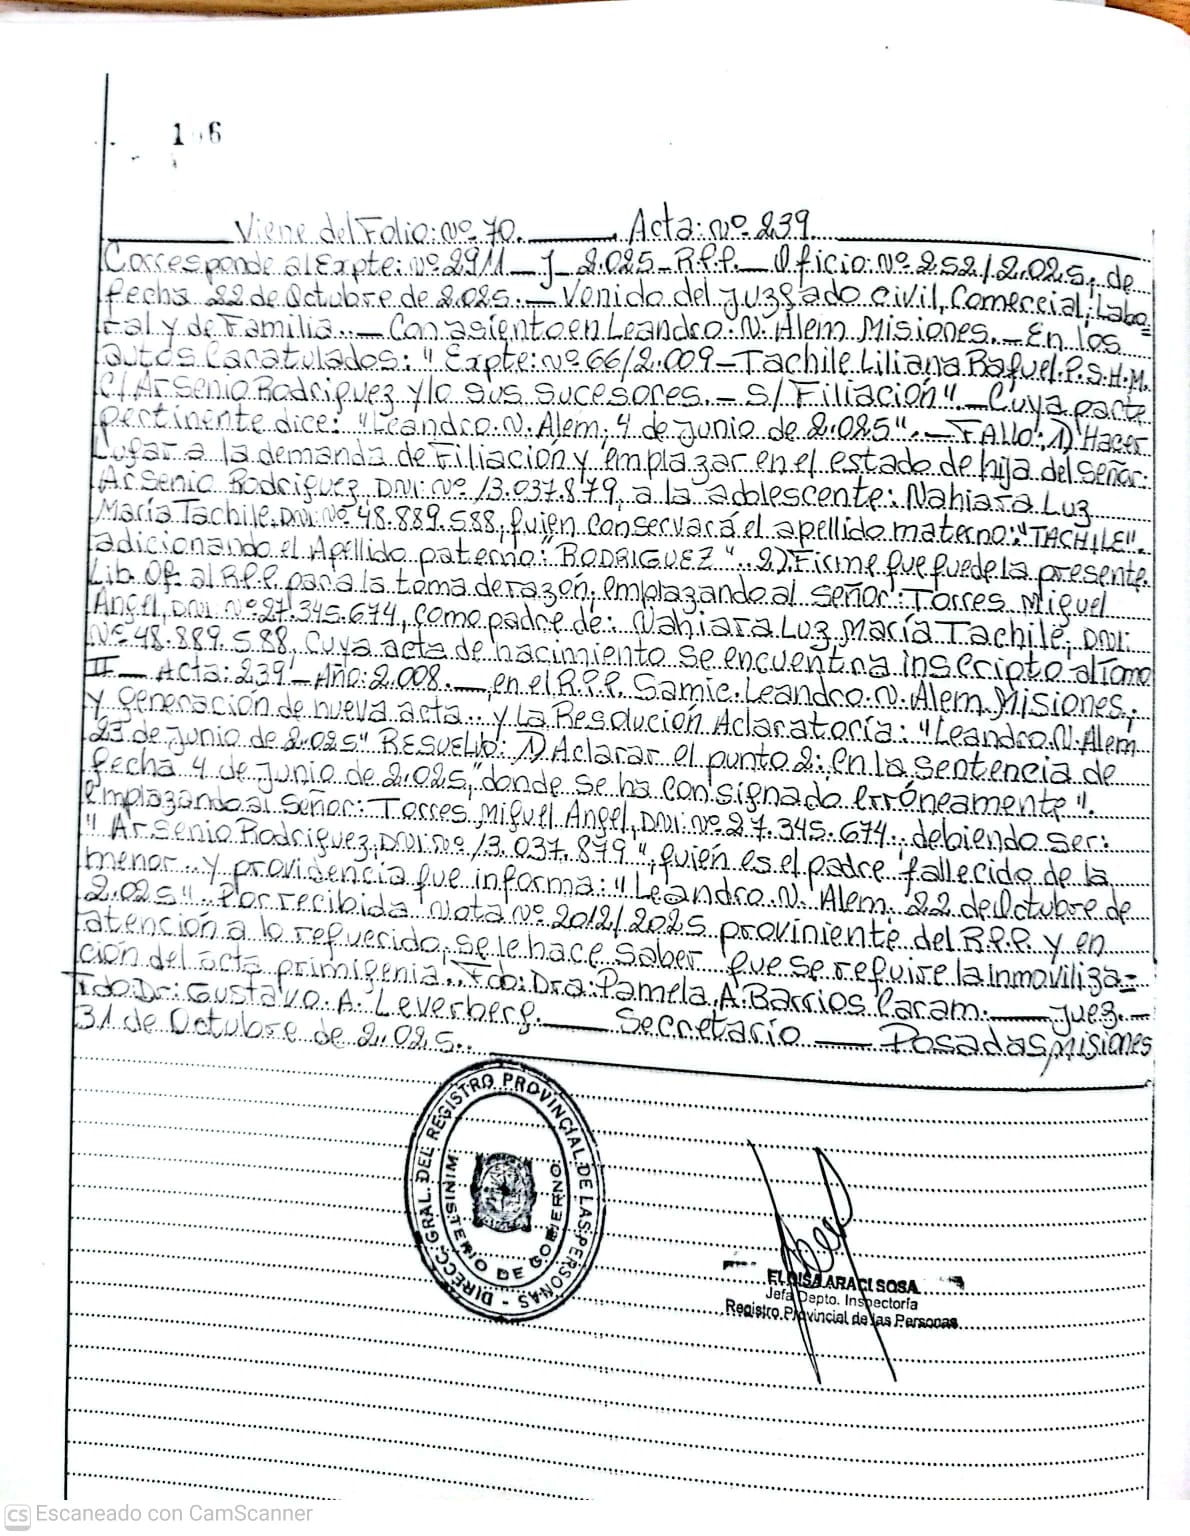 1 6
Viene del Folio: Nº 70. Acta: Nº 239.
Corresponde al Expte: Nº 2911 - J - 2.025 - R.P.P. - Oficio: Nº 252/2.025, de
fecha 22 de Octubre de 2.025. - Venido del Juzgado Civil, Comercial, Labo=
ral y de Familia.. - Con asiento en Leandro: N. Alem. Misiones. - En los
autos Caratulados: "Expte: Nº 66/2.009 - Tachile Liliana Raquel. P.S.H.M.
C/ Arsenio Rodriguez y/o sus sucesores. - S/ Filiación". - Cuya parte
pertinente dice: "Leandro. N. Alem. 4 de Junio de 2.025". - FALLO: 1) Hacer
Lugar a la demanda de Filiación y emplazar en el estado de hija del señor:
Arsenio Rodriguez, DNI: Nº 13.037.879, a la adolescente: Nahiara Luz
María Tachile, DNI: Nº 48.889.588, quien conservará el apellido materno: "TACHILE".
adicionando el Apellido paterno: "RODRIGUEZ".. 2) Firme que quede la presente.
Lib. Of. al R.P.P. para la toma de razón, emplazando al señor: Torres Miguel
Angel, DNI: Nº 27.345.674, como padre de: Nahiara Luz María Tachile, DNI:
Nº 48.889.588, Cuya acta de nacimiento se encuentra inscripto al Tomo
II - Acta: 239 - Año: 2.008. -, en el R.P.P. Samic. Leandro. N. Alem. Misiones,
y generación de nueva acta.. y La Resolución Aclaratoria: "Leandro. N. Alem
23 de Junio de 2.025" RESUELVO: 1) Aclarar el punto 2: en la sentencia de
fecha 4 de Junio de 2.025, "donde se ha consignado erróneamente".
emplazando al señor: Torres, Miguel Angel, DNI: Nº 27.345.674.. debiendo ser:
"Arsenio Rodriguez, DNI: Nº 13.037.879", quien es el padre fallecido de la
menor... y providencia que informa: "Leandro. N. Alem. 22 de Octubre de
2.025".. Por recibida Nota Nº 2012/2025 proviniente del R.P.P. y en
atención a lo requerido, se le hace saber que se require la inmoviliza=
ción del acta primigenia.. Fdo: Dra: Pamela. A. Barrios Caram. - Juez. -
Fdo. Dr: Gustavo. A. Leverberg. - Secretario - Posadas, Misiones
31 de Octubre de 2.025..
DIRECC. GRAL. DEL REGISTRO PROVINCIAL DE LAS PERSONAS -
MINISTERIO DE GOBIERNO
ELOISA ARACI SOSA
Jefa Depto. Inspectoría
Registro Provincial de las Personas
CS Escaneado con CamScanner